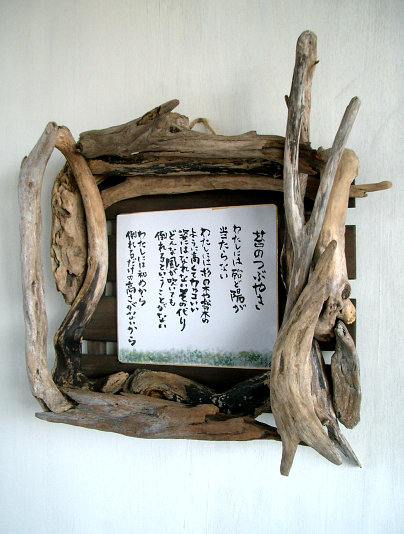 苔のつぶやき
わたしには 殆ど陽が
当たらない
わたしは杉の木や松の木の
ように高くてカッコいい
姿にはなれない その代り
どんな風が吹いても
倒れるということがない
わたしには初めから
倒れるだけの高さがないから